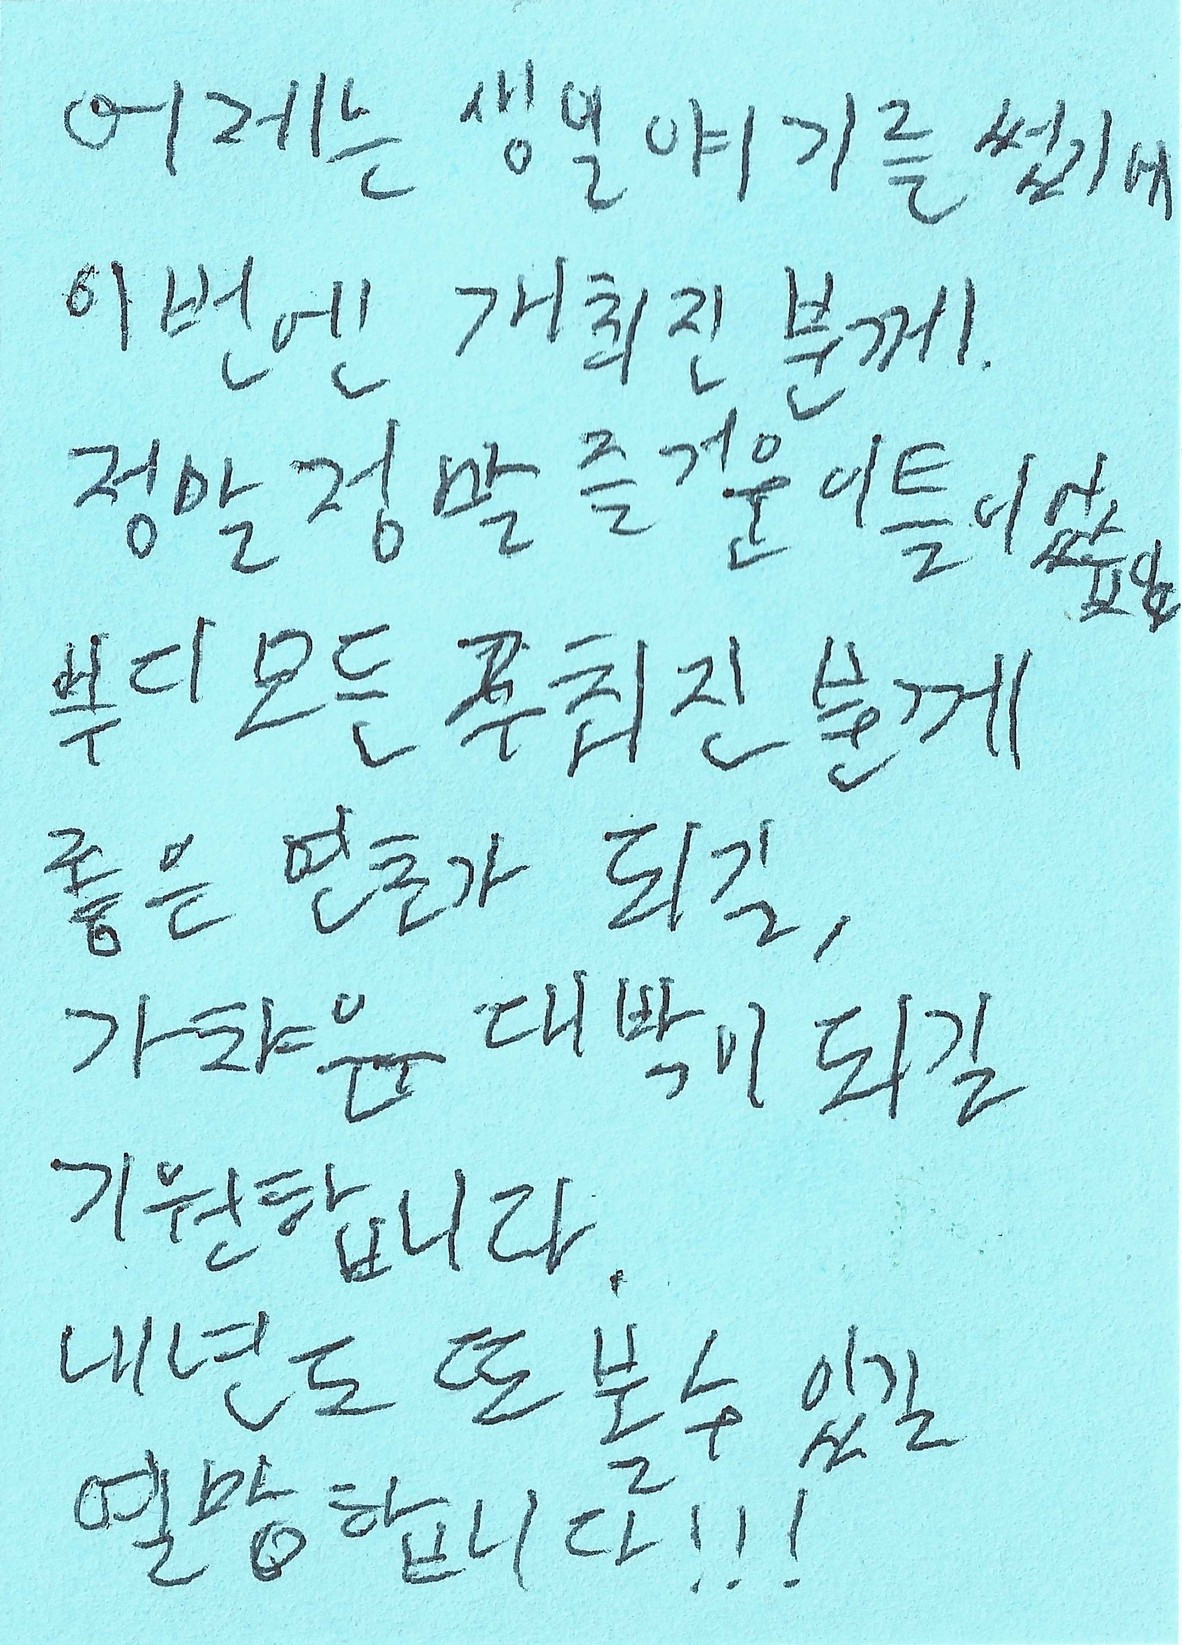 어제는 생일 얘기를 썼기에
이번엔 개최진 분께.
정말 정말 즐거운 이틀이었습니다
부디 모든 주최진 분께
좋은 먼쥬가 되길,
가챠운 대박이 되길
기원합니다.
내년도 또 볼 수 있길
열망합니다!!!